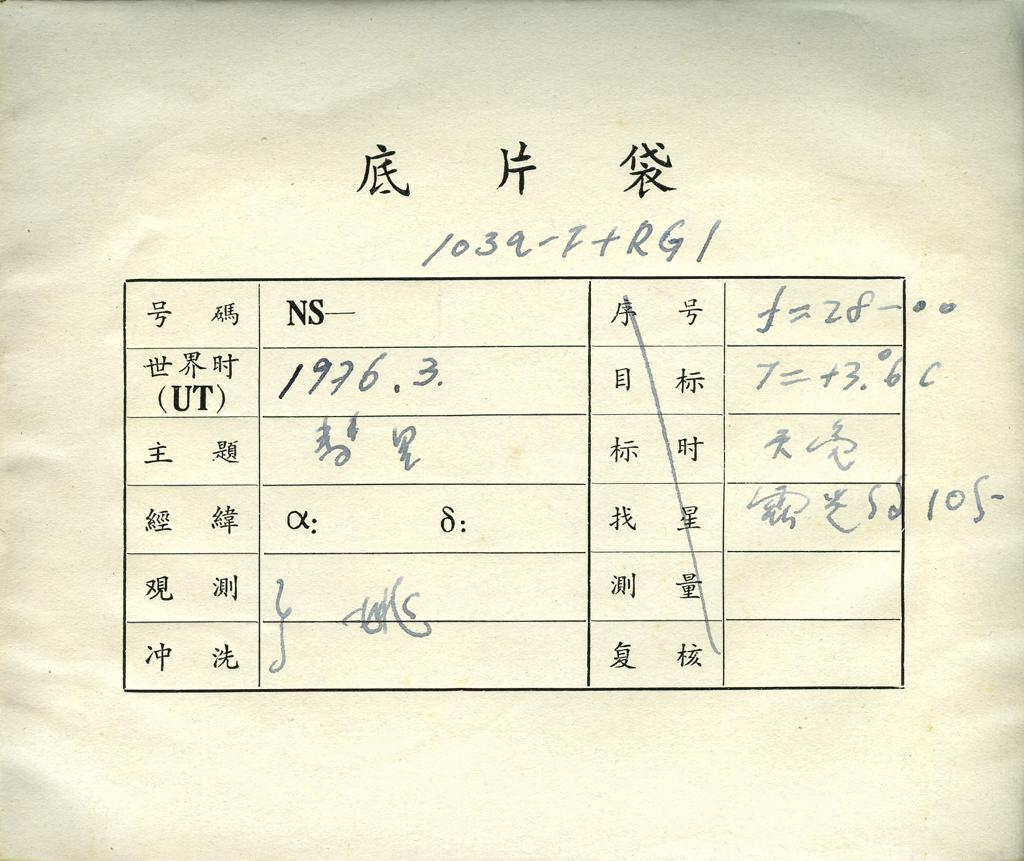 底片袋
103a-F+RG1
号碼 NS— 序号 f=28-00
世界时(UT) 1976.3. 目标 T=+3.°6 C
主題 彗星 标时 天亮
經緯 α: δ: 找星 露光 105
观測 姚 測量
冲洗 复核